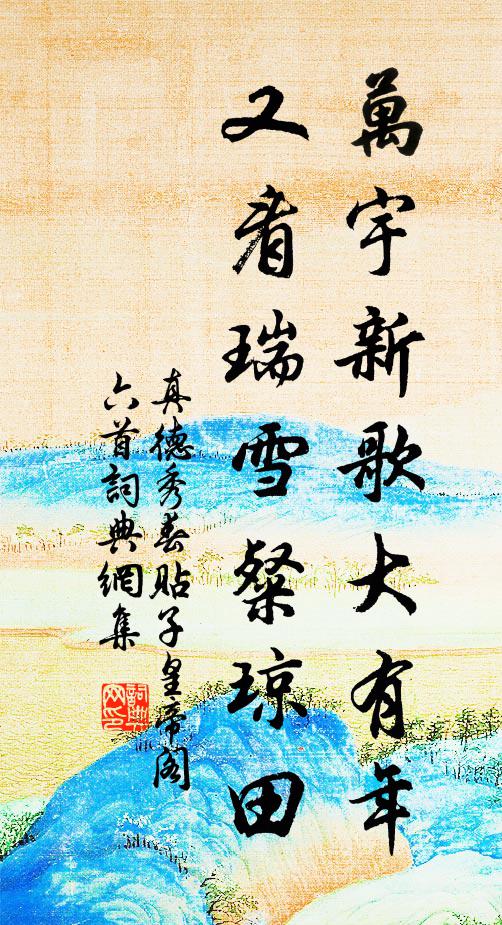 萬宇新歌大有年
又看瑞雪粲琼田
真德秀春貼子皇帝阁
六首詞典網集
詞典网印